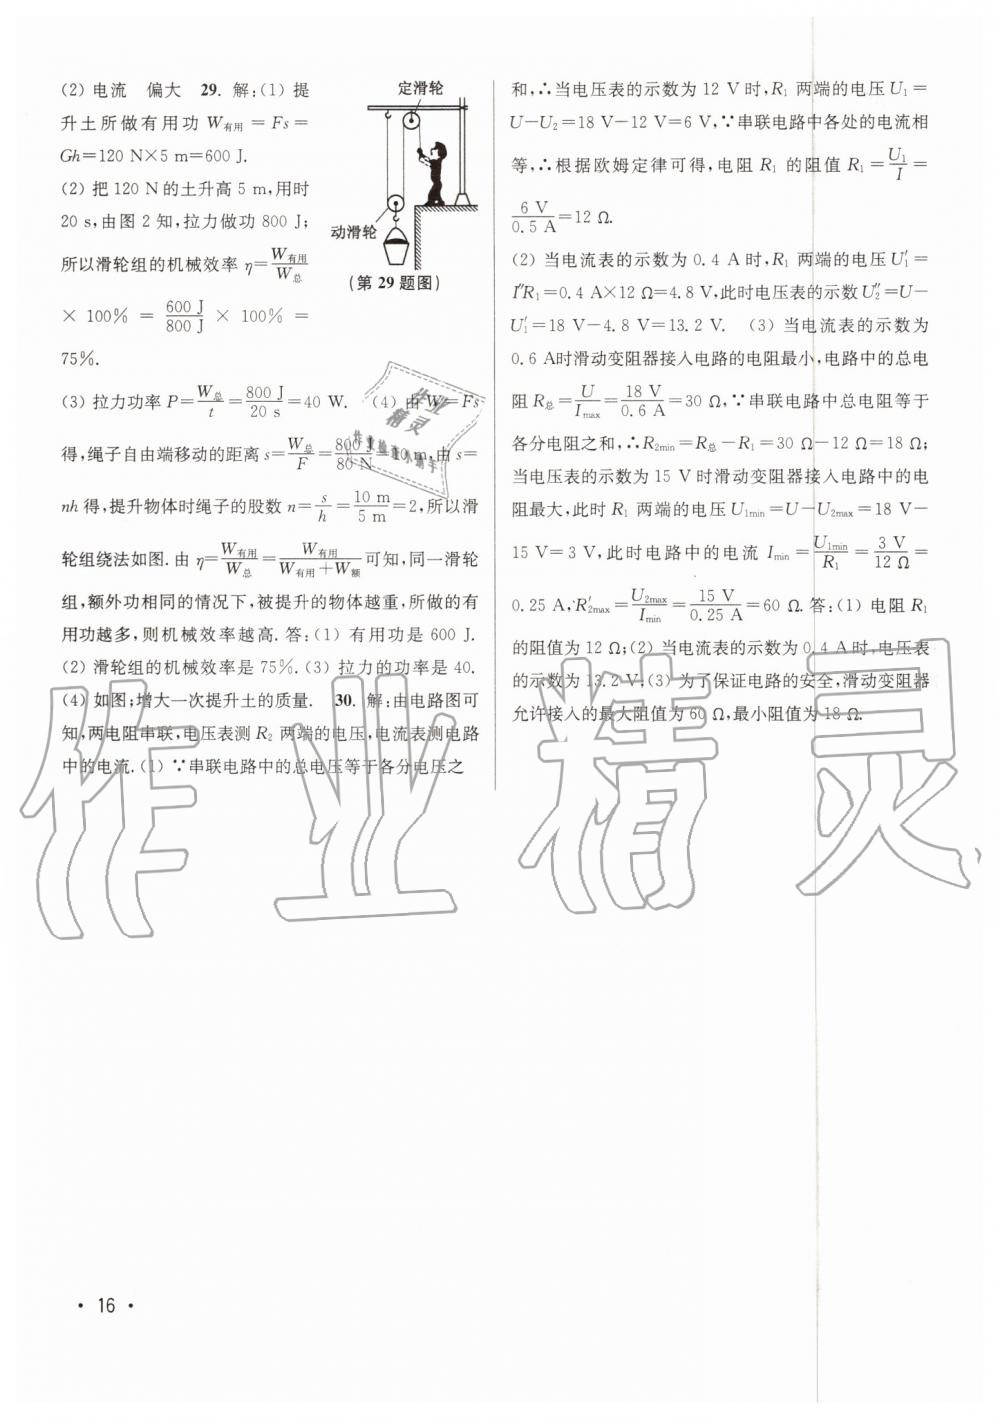 (2) 电流　偏大　29. 解:(1) 提
升土所做有用功 W有用 = Fs =
Gh=120 N×5 m=600 J.
(2) 把 120 N 的土升高 5 m,用时
20 s,由图 2 知,拉力做功 800 J;
所以滑轮组的机械效率 η=W有用/W总
× 100% = 600 J/800 J × 100% =
75%.
定滑轮
动滑轮
(第 29 题图)
(3) 拉力功率 P=W总/t=800 J/20 s=40 W.　(4) 由 W=Fs
得,绳子自由端移动的距离 s=W总/F=800 J/80 N 10 m,由 s=
nh 得,提升物体时绳子的股数 n=s/h=10 m/5 m=2,所以滑
轮组绕法如图.由 η=W有用/W总=W有用/(W有用+W额)可知,同一滑轮
组,额外功相同的情况下,被提升的物体越重,所做的有
用功越多,则机械效率越高.答:(1) 有用功是 600 J.
(2) 滑轮组的机械效率是 75%.(3) 拉力的功率是 40.
(4) 如图;增大一次提升土的质量.　30. 解:由电路图可
知,两电阻串联,电压表测 R2 两端的电压,电流表测电路
中的电流.(1) ∵串联电路中的总电压等于各分电压之
和,∴当电压表的示数为 12 V 时,R1 两端的电压 U1=
U−U2=18 V−12 V=6 V,∵串联电路中各处的电流相
等,∴根据欧姆定律可得,电阻 R1 的阻值 R1=U1/I=
6 V/0.5 A=12 Ω.
(2) 当电流表的示数为 0.4 A 时,R1 两端的电压 U1′=
I″R1=0.4 A×12 Ω=4.8 V,此时电压表的示数 U2″=U−
U1′=18 V−4.8 V=13.2 V.　(3) 当电流表的示数为
0.6 A时滑动变阻器接入电路的电阻最小,电路中的总电
阻 R总=U/Imax=18 V/0.6 A=30 Ω,∵串联电路中总电阻等于
各分电阻之和,∴R2min=R总−R1=30 Ω−12 Ω=18 Ω;
当电压表的示数为 15 V 时滑动变阻器接入电路中的电
阻最大,此时 R1 两端的电压 U1min=U−U2max=18 V−
15 V=3 V,此时电路中的电流 Imin=U1min/R1=3 V/12 Ω=
0.25 A,R2max′=U2max/Imin=15 V/0.25 A=60 Ω.答:(1) 电阻 R1
的阻值为 12 Ω;(2) 当电流表的示数为 0.4 A 时,电压表
的示数为 13.2 V;(3) 为了保证电路的安全,滑动变阻器
允许接入的最大阻值为 60 Ω,最小阻值为 18 Ω.
作业精灵
作业
精灵
作业检查小帮手
· 16 ·